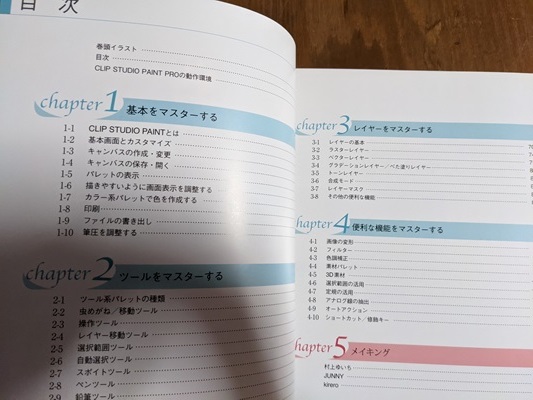 目 次
巻頭イラスト
目次
CLIP STUDIO PAINT PROの動作環境
chapter 1 基本をマスターする
1-1 CLIP STUDIO PAINTとは
1-2 基本画面とカスタマイズ
1-3 キャンバスの作成・変更
1-4 キャンバスの保存・開く
1-5 パレットの表示
1-6 描きやすいように画面表示を調整する
1-7 カラー系パレットで色を作成する
1-8 印刷
1-9 ファイルの書き出し
1-10 筆圧を調整する
chapter 2 ツールをマスターする
2-1 ツール系パレットの種類
2-2 虫めがね／移動ツール
2-3 操作ツール
2-4 レイヤー移動ツール
2-5 選択範囲ツール
2-6 自動選択ツール
2-7 スポイトツール
2-8 ペンツール
2-9 鉛筆ツール
chapter 3 レイヤーをマスターする
3-1 レイヤーの基本
3-2 ラスターレイヤー
3-3 ベクターレイヤー
3-4 グラデーションレイヤー／べた塗りレイヤー
3-5 トーンレイヤー
3-6 合成モード
3-7 レイヤーマスク
3-8 その他の便利な機能
chapter 4 便利な機能をマスターする
4-1 画像の変形
4-2 フィルター
4-3 色調補正
4-4 素材パレット
4-5 3D素材
4-6 選択範囲の活用
4-7 定規の活用
4-8 アナログ線の抽出
4-9 オートアクション
4-10 ショートカット／修飾キー
chapter 5 メイキング
村上ゆいち
JUNNY
kirero